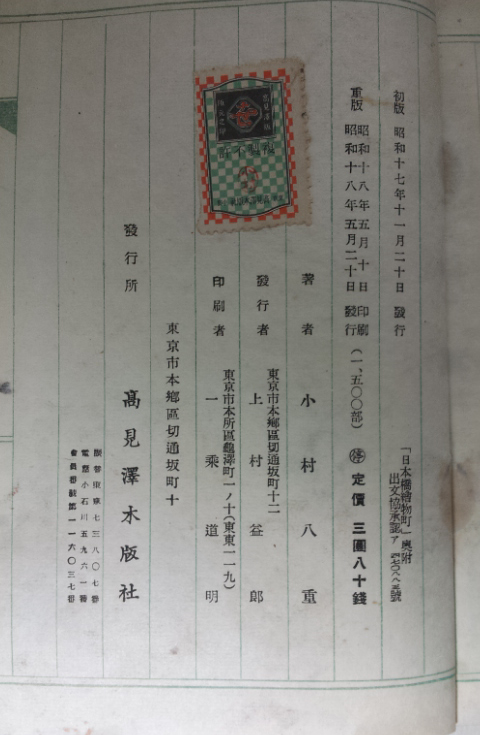 「日本橋檜物町」奥附
初版 昭和十七年十一月二十日 發行
重版 昭和十八年五月十日 印刷
昭和十八年五月二十日 發行
(一、五〇〇部)
㊡ 定價 三圓八十錢
著者 小村八重
東京市本鄕區切通坂町十二
發行者 上村益郎
東京市本所區龜澤町二ノ十
印刷者 一乘道明
東京市本鄕區切通坂町十
發行所 髙見澤木版社
振替東京七三八〇七番
電話小石川五九六一番
會員番號第一一六〇三七番